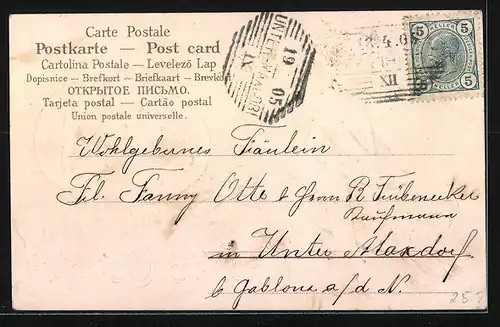 Carte Postale
Postkarte — Post card
Cartolina Postale — Levelező Lap
Dopisnice — Brefkort — Briefkaart — Brevkort
ОТКРЫТОЕ ПИСЬМО.
Tarjeta postal — Cartão postal
Union postale universelle.
19
05
IX
4.0
XII
5 5
HELLER
5 5
Wohlgebornes Fräulein
Frl. Fanny Otte b Herrn R
Kaufmann
in Unter Maxdorf
b Gablonz a/d N.
25